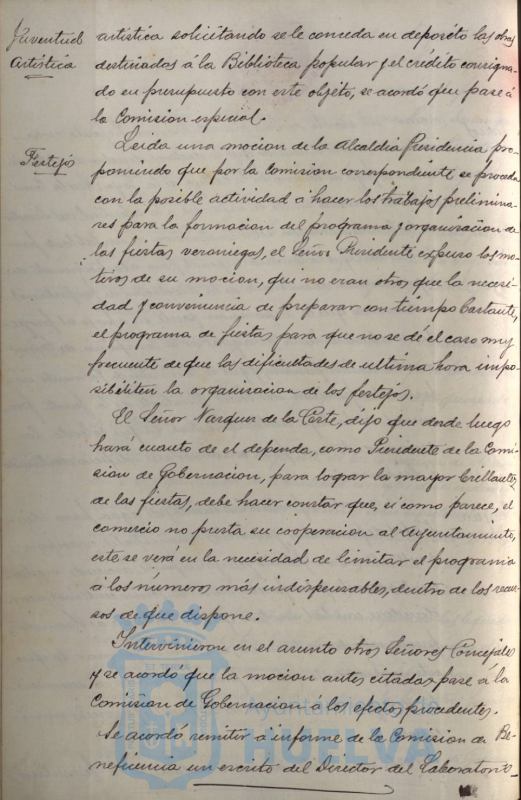 Juventud
Artística
artística solicitando se le conceda en depósito las obras
destinadas á la Biblioteca popular y el crédito consigna-
do en presupuesto con este objeto, se acordó que pase á
la Comision especial.
Festejos
Leida una mocion de la Alcaldia Presidencia pro-
poniendo que por la Comision correspondiente se proceda
con la posible actividad á hacer los trabajos prelimina-
res para la formacion del programa y organizacion de
las fiestas veraniegas, el Señor Presidente expuso los mo-
tivos de su mocion, que no eran otros que la necesi-
dad y conveniencia de preparar con tiempo bastante,
el programa de fiestas para que no se dé el caso muy
frecuente de que las dificultades de ultima hora impo-
sibiliten la organizacion de los festejos.
El Señor Vazquez de la Corte, dijo que desde luego
hará cuanto de el dependa, como Presidente de la Comi-
sion de Gobernacion, para lograr la mayor brillantez
de las fiestas, debe hacer constar que, si como parece, el
comercio no presta su cooperacion al Ayuntamiento,
este se verá en la necesidad de limitar el programa
á los números más indispensables, dentro de los recur-
sos de que dispone.
Intervinieron en el asunto otros Señores Concejales
y se acordó que la mocion antes citada, pase á la
Comision de Gobernacion á los efectos procedentes.
Se acordó remitir á informe de la Comision de Be-
neficencia un escrito del Director del Laboratorio
Ayuntamiento de
HUELVA